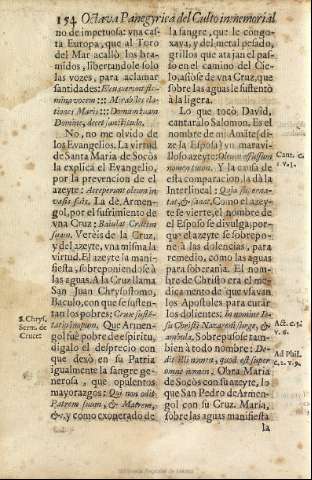 154 Octava Panegyrica del Culto inmemorial
no de impetuosa: vna casta
Europa, que al Toro
del Mar acallò los bramidos,
libertandole solo
las vozes, para aclamar
santidades:
Domum tuam
Domine, decet sanctitudo.
No, no me olvido de
los Evangelios. La virtud
de Santa Maria de Socòs
la explica el Evangelio,
por la prevencion de el
azeyte: Acceperunt oleum in
vasis suis. La de Armengol,
por el sufrimiento de
vna Cruz: Baiulat Crucem
suam. Vereis de la Cruz,
y del azeyte, vna misma la
virtud. El azeyte la manifiesta,
sobreponiendose à
las aguas. A la Cruz llama
San Juan Chrysostomo
Baculo, con que se sustentan
los pobres: Crux sustentatio
inopum. Que Armengol
fuè pobre de espiritu,
digalo el desprecio con
que dexò en su Patria
igualmente la sangre generosa,
que opulentos
mayorazgos: Qui non odit
Patrem suum, & Matrem,
&c. y como exonerado de
S. Chrys.
Serm. de
Cruce.
la sangre, que le congoxava,
y del metal pesado,
grillos que atajan el passo
en el camino del Cielo,
asiòse de vna Cruz, que
sobre las aguas le sustentò
à la ligera.
Lo que tocò David,
cantaràlo Salomon. Es el
nombre de mi Amãte (dize
la Esposa) vn maravilloso
azeyte: Oleum effusum
nomen tuum. Y la causa de
esta comparacion, la dà la
Interlineal:
Como el azeyte
se vierte, el nombre de
el Esposo se divulga; porque
el azeyte se sobrepone
à las dolencias, para
remedio, como las aguas
para soberania. El nombre
de Christo era el medicamento
de que vsavan
los Apostoles para curàr
los dolientes: In nomine Iesu
Christi Nazareni surge, &
ambula. Sobrepusose tambien
à todo nombre: Dedit
illi nomen, quod est super
omne nomen. Obra Maria
de Socòs con su azeyte, lo
que San Pedro de Armengol
con su Cruz. Maria,
sobre las aguas manifiesta
la
Cant. c.
1. v.
Act. c. 3.
v. 6.
Ad Phil.
c. 2. v. 9.